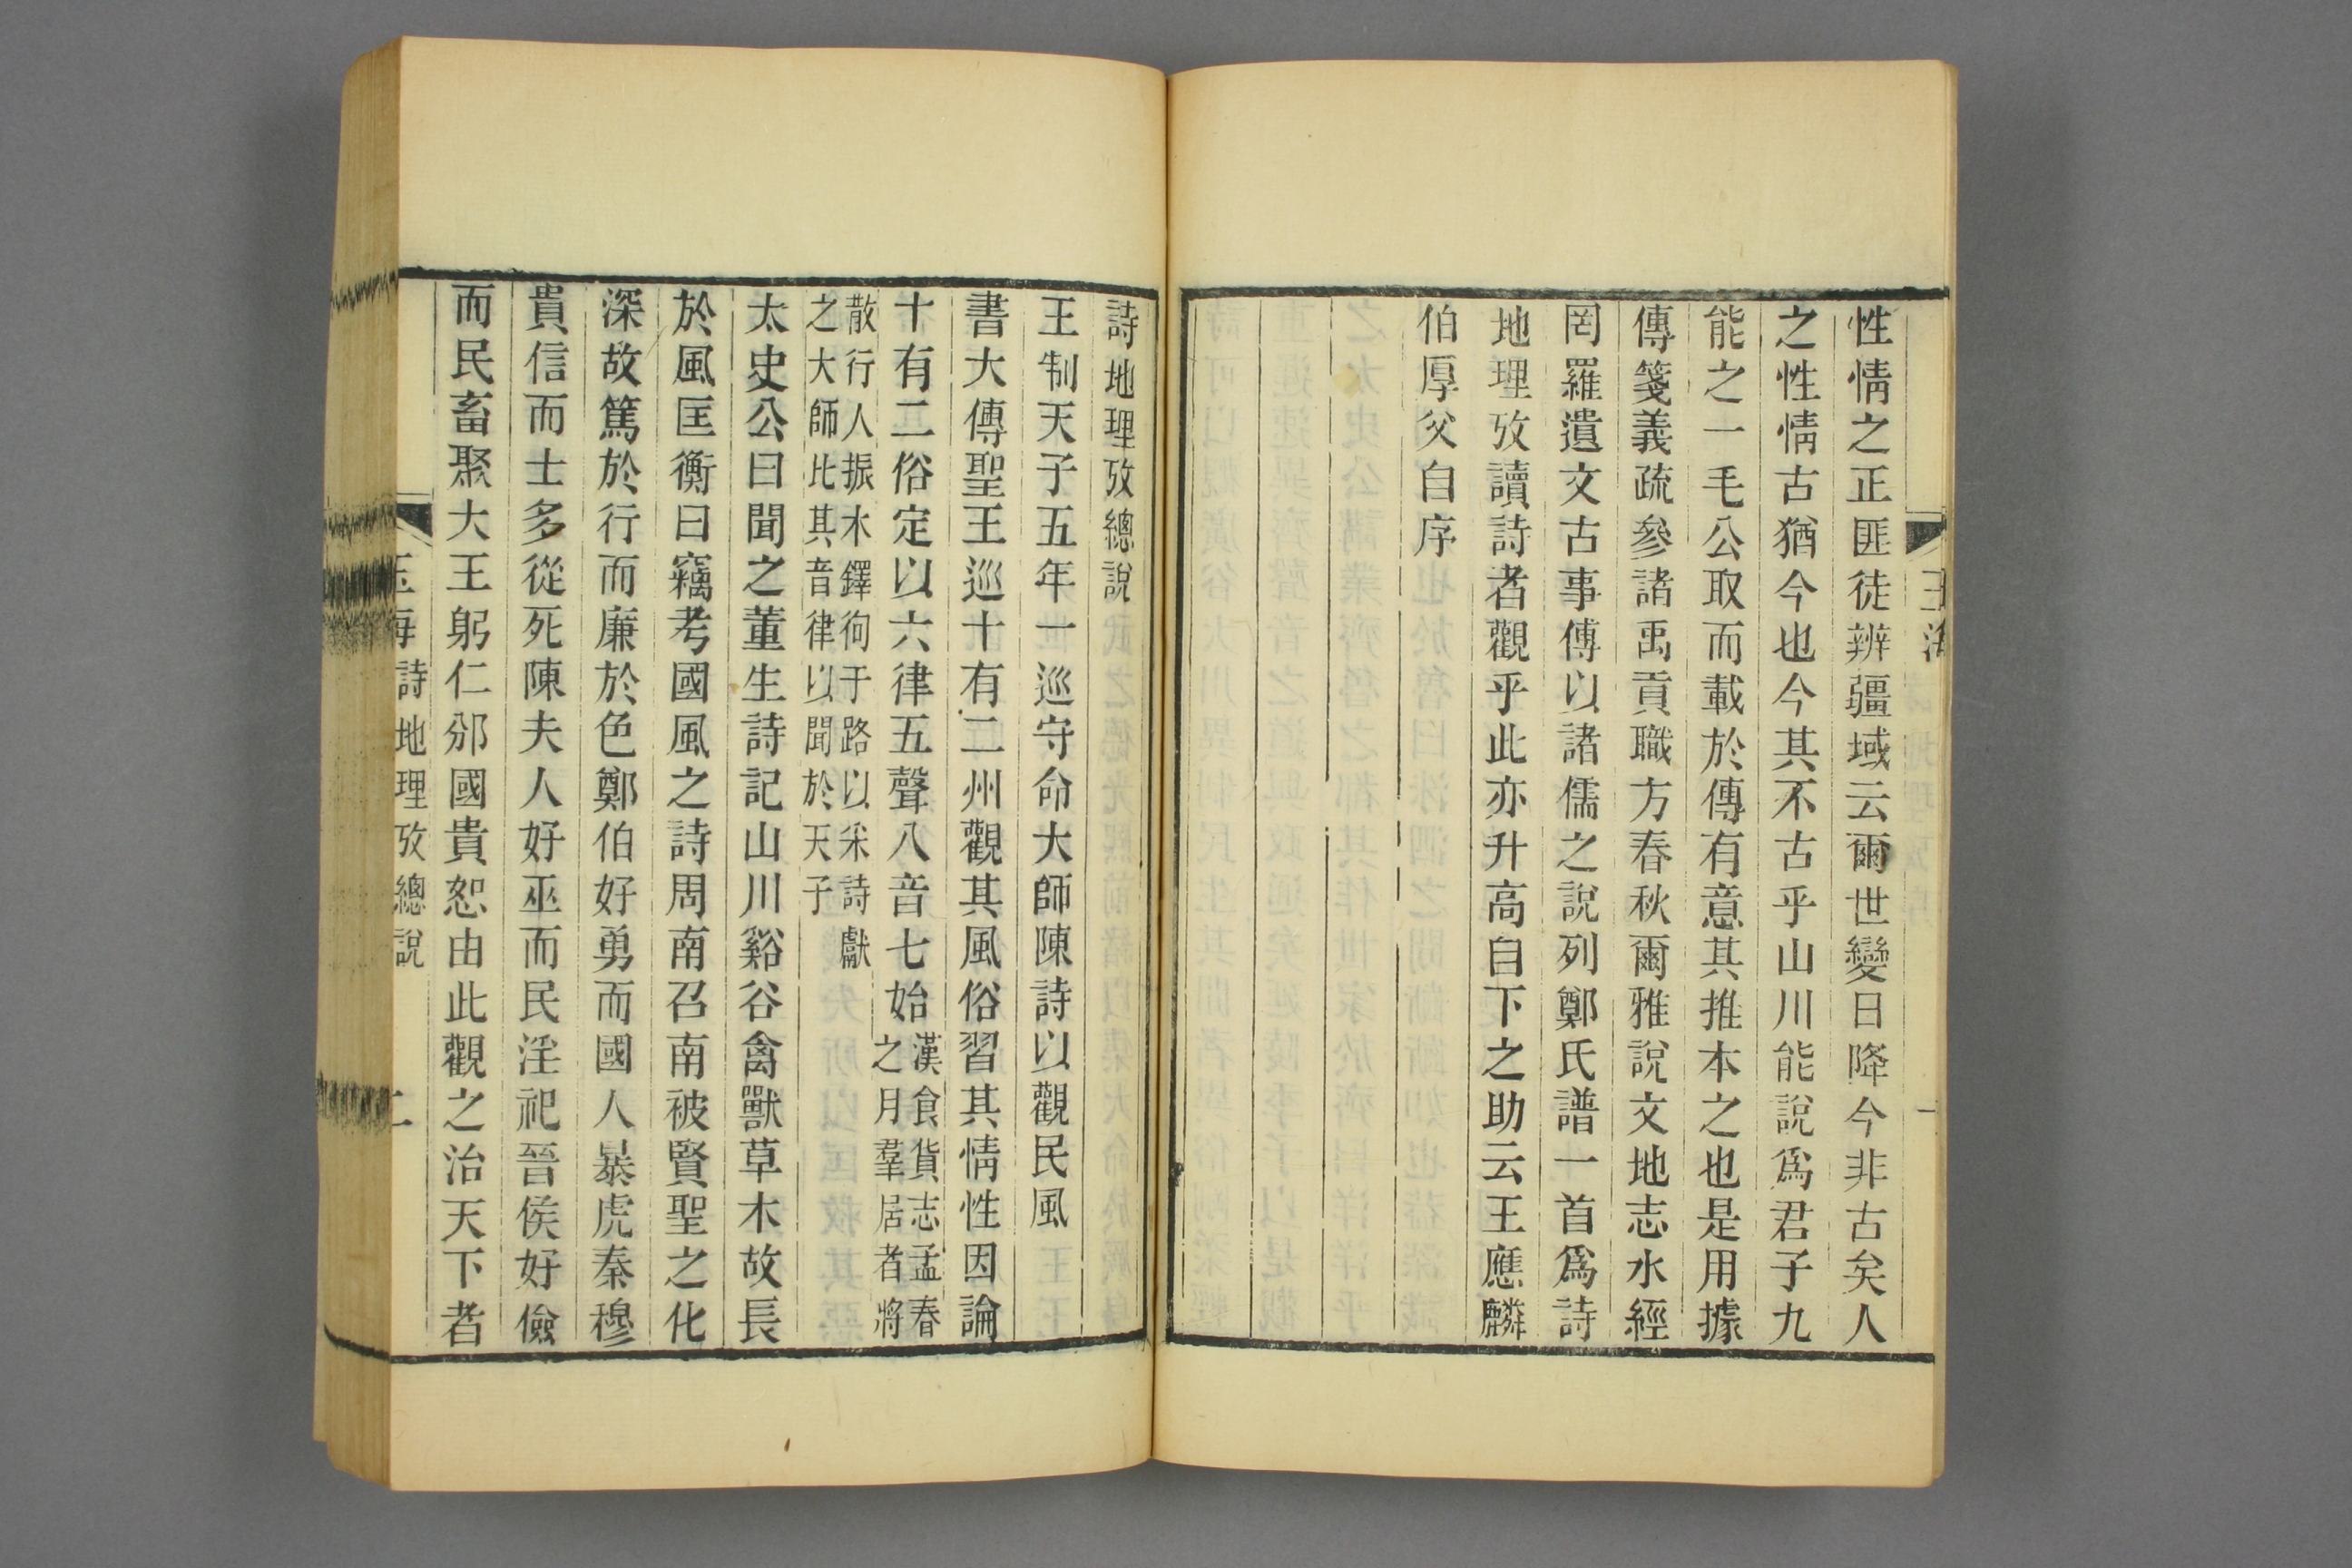 玉海
一
性情之正匪徒辨疆域云爾世變日降今非古矣人
之性情古猶今也今其不古乎山川能說爲君子九
能之一毛公取而載於傳有意其推本之也是用據
傳箋義疏參諸禹貢職方春秋爾雅說文地志水經
罔羅遺文古事傅以諸儒之說列鄭氏譜一首爲詩
地理攷讀詩者觀乎此亦升高自下之助云王應麟
伯厚父自序
詩地理攷總說
王制天子五年一巡守命大師陳詩以觀民風
書大傳聖王巡十有二州觀其風俗習其情性因論
十有二俗定以六律五聲八音七始
漢食貨志孟春
之月羣居者將
散行人振木鐸徇于路以采詩獻
之大師比其音律以聞於天子
太史公曰聞之董生詩記山川谿谷禽獸草木故長
於風匡衡曰竊考國風之詩周南召南被賢聖之化
深故篤於行而廉於色鄭伯好勇而國人暴虎秦穆
貴信而士多從死陳夫人好巫而民淫祀晉侯好儉
而民畜聚大王躬仁邠國貴恕由此觀之治天下者
玉海詩地理攷總說
二